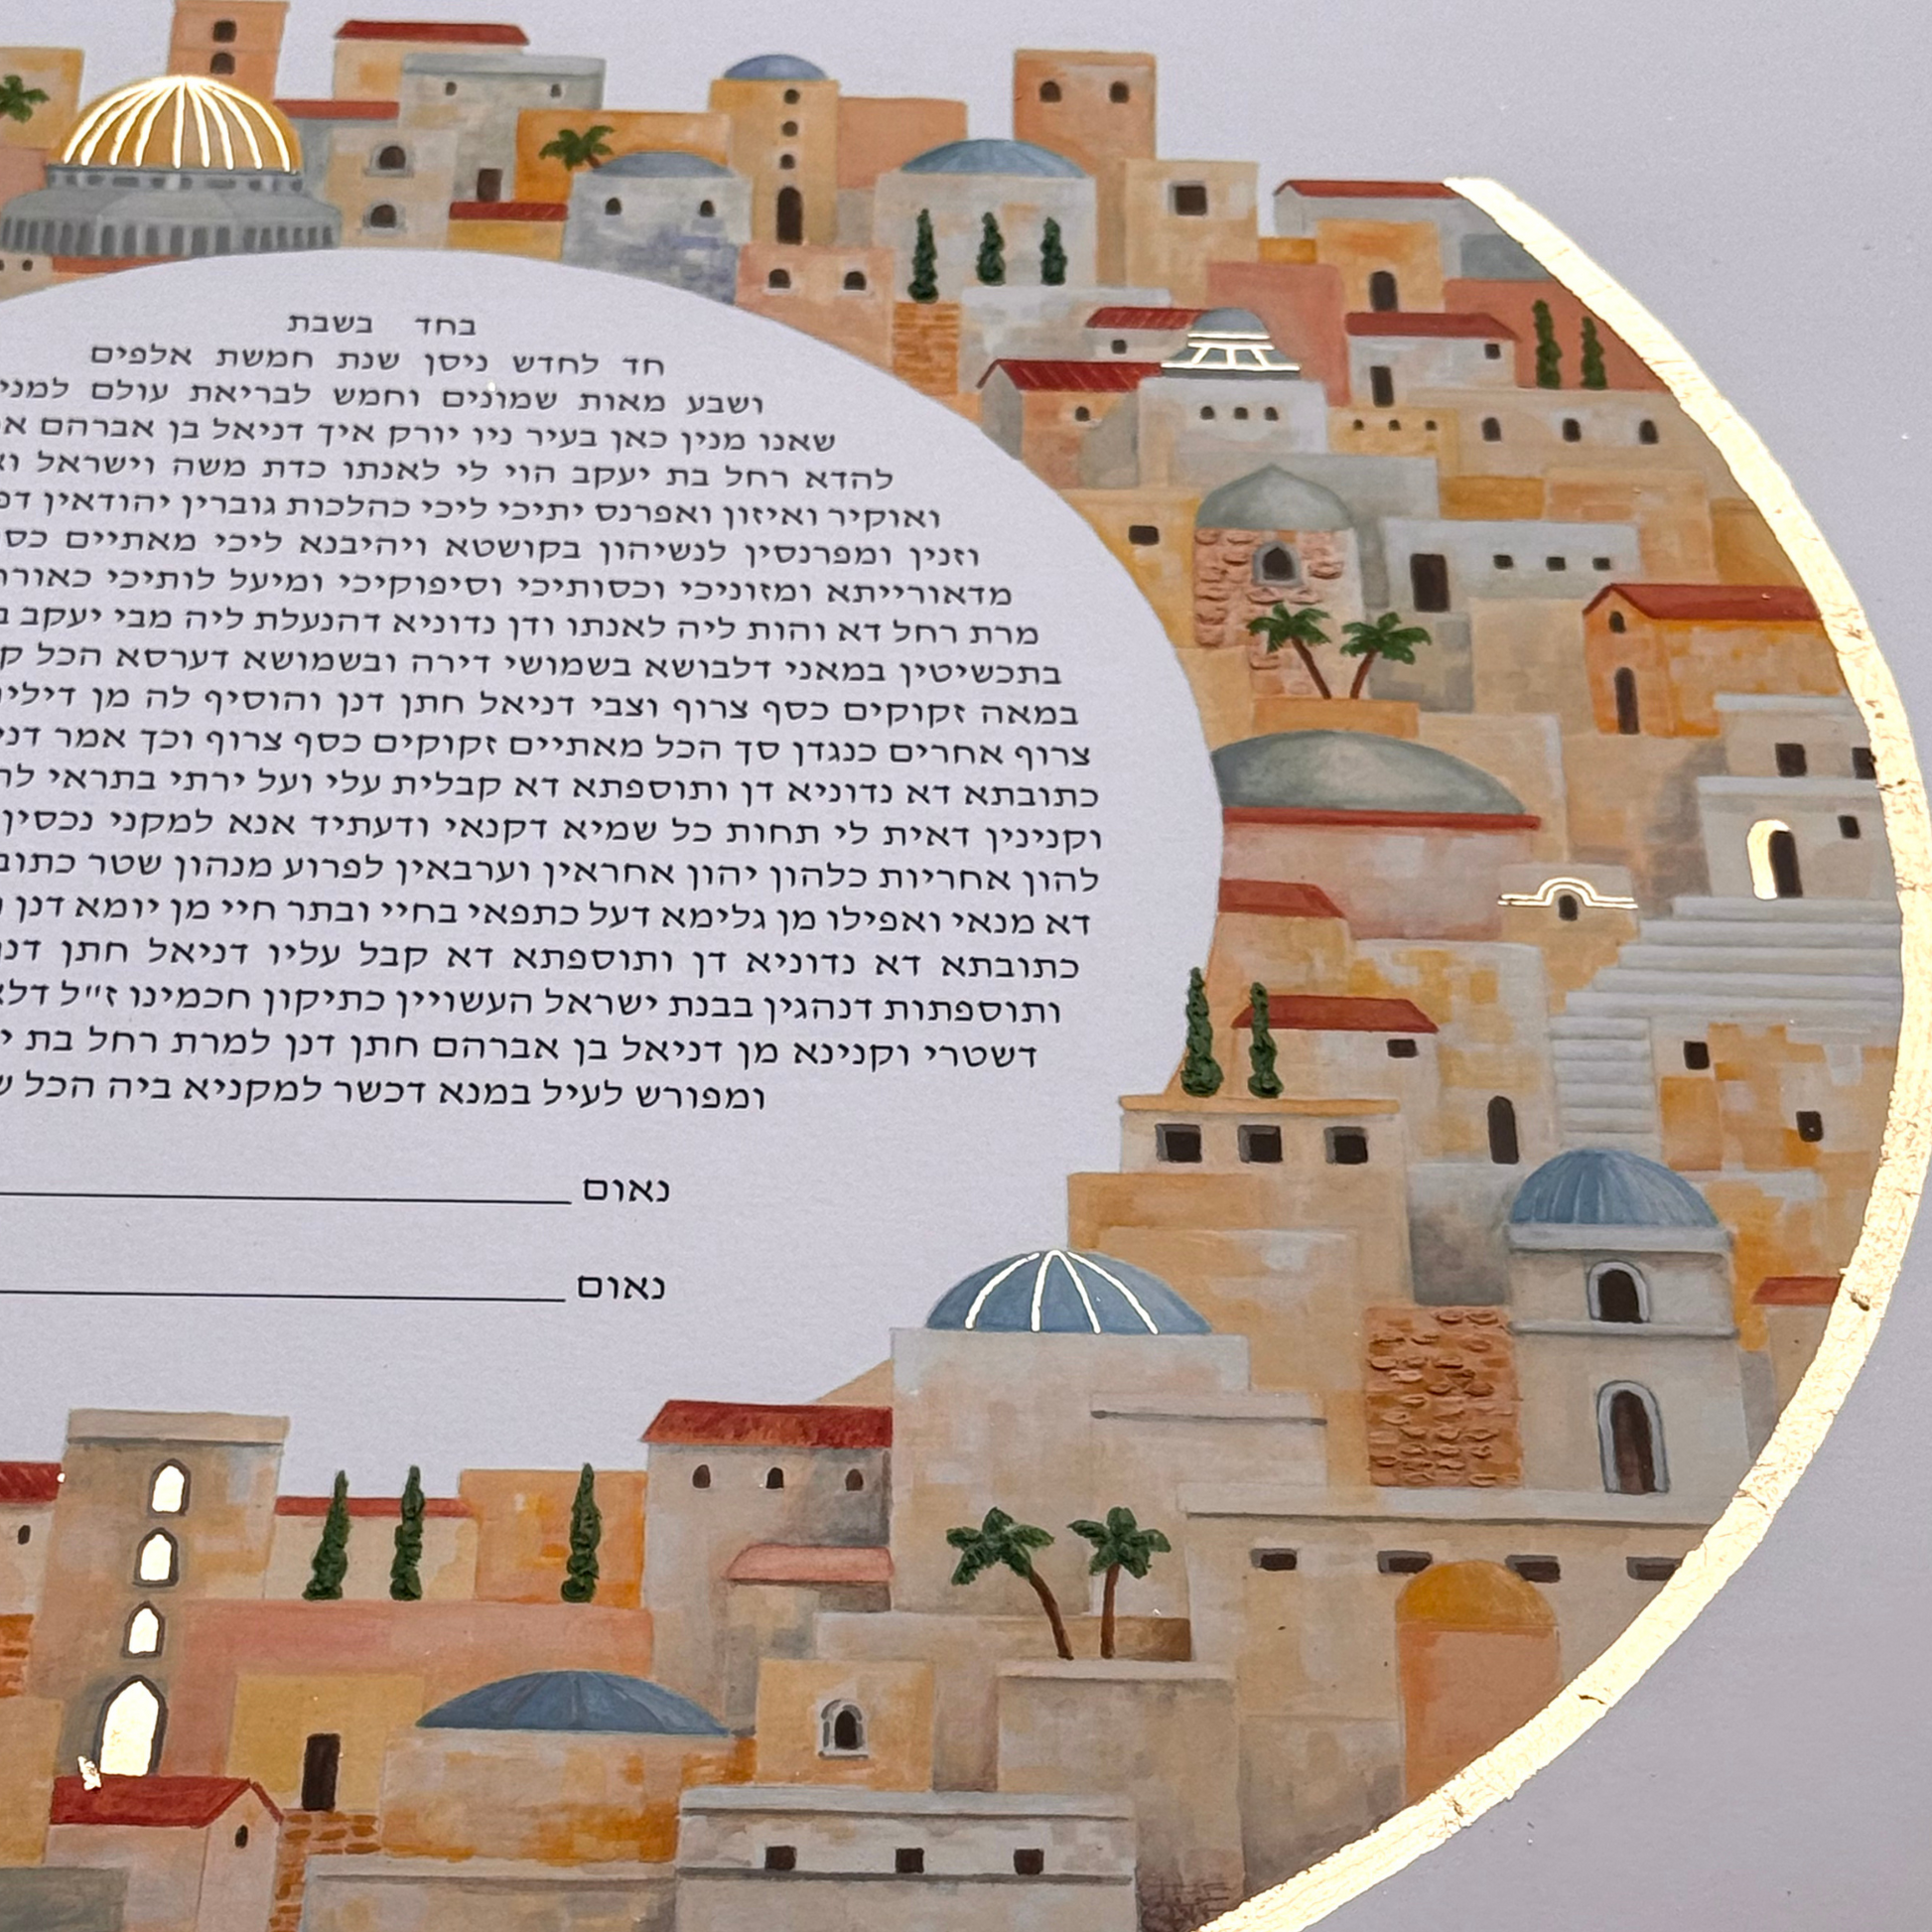 בחד בשבת
חד לחדש ניסן שנת חמשת אלפים
ושבע מאות שמונים וחמש לבריאת עולם
שאנו מנין כאן בעיר ניו יורק איך דניאל בן אברהם
להדא רחל בת יעקב הוי לי לאנתו כדת משה וישראל
ואוקיר ואיזון ואפרנס יתיכי ליכי כהלכות גוברין יהודאין
וזנין ומפרנסין לנשיהון בקושטא ויהיבנא ליכי מאתיים
מדאורייתא ומזוניכי וכסותיכי וסיפוקיכי ומיעל לותיכי
מרת רחל דא והות ליה לאנתו ודן נדוניא דהנעלת ליה מבי יעקב
בתכשיטין במאני דלבושא בשמושי דירה ובשמושא דערסא הכל
במאה זקוקים כסף צרוף וצבי דניאל חתן דנן והוסיף לה מן
צרוף אחרים כנגדן סך הכל מאתיים זקוקים כסף צרוף וכך אמר
כתובתא דא נדוניא דן ותוספתא דא קבלית עלי ועל ירתי בתראי
וקנינין דאית לי תחות כל שמיא דקנאי ודעתיד אנא למקני נכסין
להון אחריות כלהון יהון אחראין וערבאין לפרוע מנהון שטר
דא מנאי ואפילו מן גלימא דעל כתפאי בחיי ובתר חיי מן יומא דנן
כתובתא דא נדוניא דן ותוספתא דא קבל עליו דניאל חתן
ותוספתות דנהגין בבנת ישראל העשויין כתיקון חכמינו ז"ל
דשטרי וקנינא מן דניאל בן אברהם חתן דנן למרת רחל בת
ומפורש לעיל במנא דכשר למקניא ביה הכל
נאום
נאום